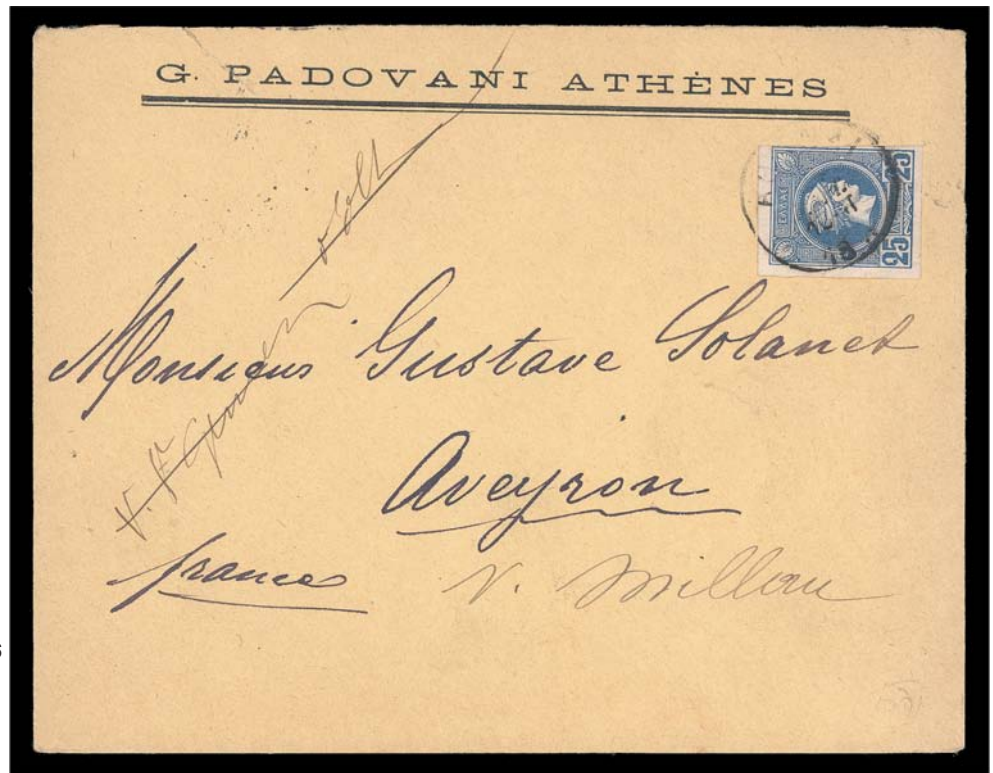 G. PADOVANI ATHÈNES
25 25
ΕΛΛΑΣ
12
Monsieur Gustave Solanet
Aveyron
france
V. Millau